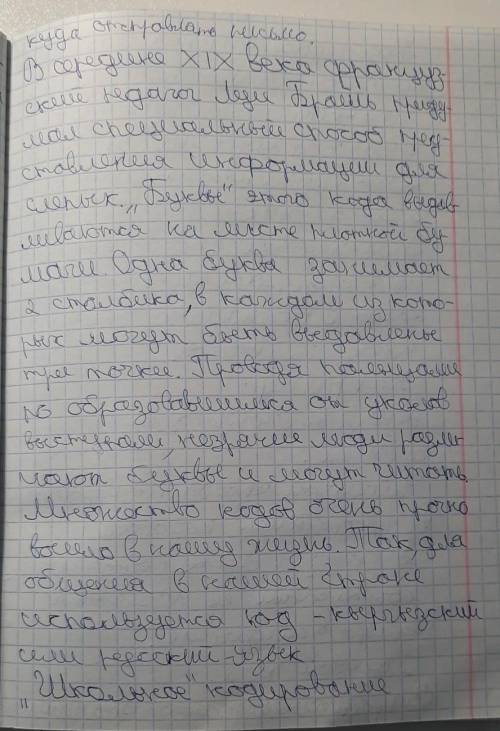 куда отправлять письмо.
В середине XIX века француз-
ский педагог Луи Брайль приду-
мал специальный способ пред-
ставления информации для
слепых. „Буквы" этого кода выдав-
ливаются на листе плотной бу-
маги. Одна буква занимает
2 столбика, в каждом из кото-
рых могут быть выдавлены
три точки. Проводя пальцами
по образовавшимся от уколов
выступам, незрячие люди разли-
чают буквы и могут читать.
Множество кодов очень прочно
вошло в нашу жизнь. Так, для
общения в нашей стране
используется код - кыргызский
или русский язык
„Школьное" кодирование